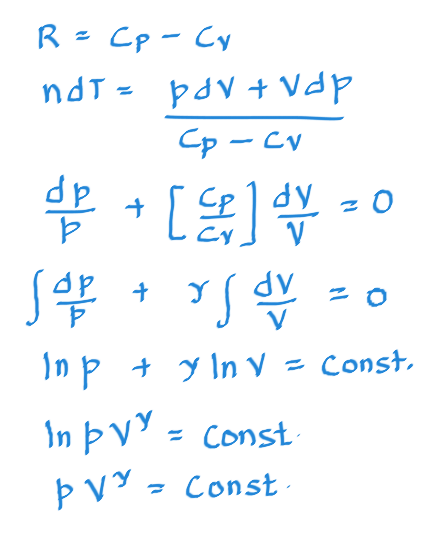 R = Cp - Cv
ndT = (pdV + Vdp) / (Cp - Cv)
dp/p + [Cp/Cv] dV/V = 0
∫ dp/p + γ ∫ dV/V = 0
ln p + γ ln V = Const.
ln pV^γ = Const.
pV^γ = Const.